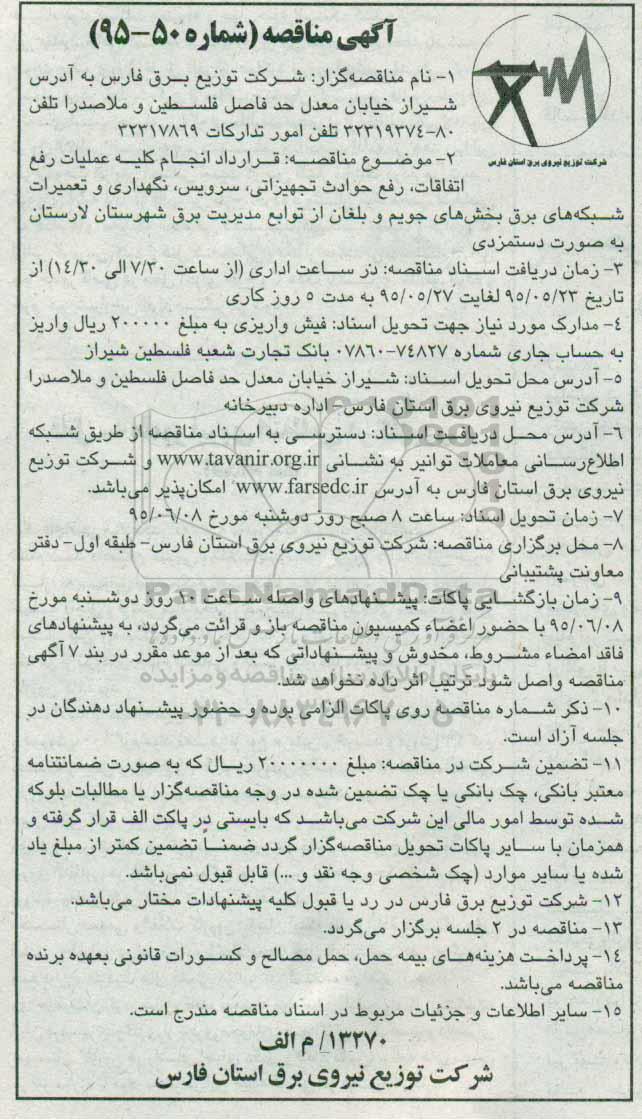 آگهی مناقصه (شماره ۵۰-۹۵)
شرکت توزیع نیروی برق استان فارس
۱- نام مناقصه‌گزار: شرکت توزیع برق فارس به آدرس
شیراز خیابان معدل حد فاصل فلسطین و ملاصدرا تلفن
۸۰-۳۲۳۱۹۳۷۴ تلفن امور تدارکات ۳۲۳۱۷۸۶۹
۲- موضوع مناقصه: قرارداد انجام کلیه عملیات رفع
اتفاقات، رفع حوادث تجهیزاتی، سرویس، نگهداری و تعمیرات
شبکه‌های برق بخش‌های جویم و بلغان از توابع مدیریت برق شهرستان لارستان
به صورت دستمزدی
۳- زمان دریافت اسناد مناقصه: در ساعت اداری (از ساعت ۷/۳۰ الی ۱۴/۳۰) از
تاریخ ۹۵/۰۵/۲۳ لغایت ۹۵/۰۵/۲۷ به مدت ۵ روز کاری
۴- مدارک مورد نیاز جهت تحویل اسناد: فیش واریزی به مبلغ ۲۰۰۰۰۰ ریال واریز
به حساب جاری شماره ۷۴۸۲۷-۰۷۸۶۰ بانک تجارت شعبه فلسطین شیراز
۵- آدرس محل تحویل اسناد: شیراز خیابان معدل حد فاصل فلسطین و ملاصدرا
شرکت توزیع نیروی برق استان فارس - اداره دبیرخانه
۶- آدرس محل دریافت اسناد: دسترسی به اسناد مناقصه از طریق شبکه
اطلاع‌رسانی معاملات توانیر به نشانی www.tavanir.org.ir و شرکت توزیع
نیروی برق استان فارس به آدرس www.farsedc.ir امکان‌پذیر می‌باشد.
۷- زمان تحویل اسناد: ساعت ۸ صبح روز دوشنبه مورخ ۹۵/۰۶/۰۸
۸- محل برگزاری مناقصه: شرکت توزیع نیروی برق استان فارس- طبقه اول- دفتر
معاونت پشتیبانی
ParsNamadData
۹- زمان بازگشایی پاکات: پیشنهادهای واصله ساعت ۱۰ روز دوشنبه مورخ
۹۵/۰۶/۰۸ با حضور اعضاء کمیسیون مناقصه باز و قرائت می‌گردد، به پیشنهادهای
فاقد امضاء مشروط، مخدوش و پیشنهاداتی که بعد از موعد مقرر در بند ۷ آگهی
مناقصه واصل شود ترتیب اثر داده نخواهد شد.
پایگاه اطلاع رسانی مناقصه و مزایده
۱۰- ذکر شماره مناقصه روی پاکات الزامی بوده و حضور پیشنهاد دهندگان در
جلسه آزاد است.
۱۱- تضمین شرکت در مناقصه: مبلغ ۲۰۰۰۰۰۰۰ ریال که به صورت ضمانتنامه
معتبر بانکی، چک بانکی یا چک تضمین شده در وجه مناقصه‌گزار یا مطالبات بلوکه
شده توسط امور مالی این شرکت می‌باشد که بایستی در پاکت الف قرار گرفته و
همزمان با سایر پاکات تحویل مناقصه‌گزار گردد ضمناً تضمین کمتر از مبلغ یاد
شده یا سایر موارد (چک شخصی وجه نقد و ...) قابل قبول نمی‌باشد.
۱۲- شرکت توزیع برق فارس در رد یا قبول کلیه پیشنهادات مختار می‌باشد.
۱۳- مناقصه در ۲ جلسه برگزار می‌گردد.
۱۴- پرداخت هزینه‌های بیمه حمل، حمل مصالح و کسورات قانونی بعهده برنده
مناقصه می‌باشد.
۱۵- سایر اطلاعات و جزئیات مربوط در اسناد مناقصه مندرج است.
۱۳۲۷۰/ م الف
شرکت توزیع نیروی برق استان فارس